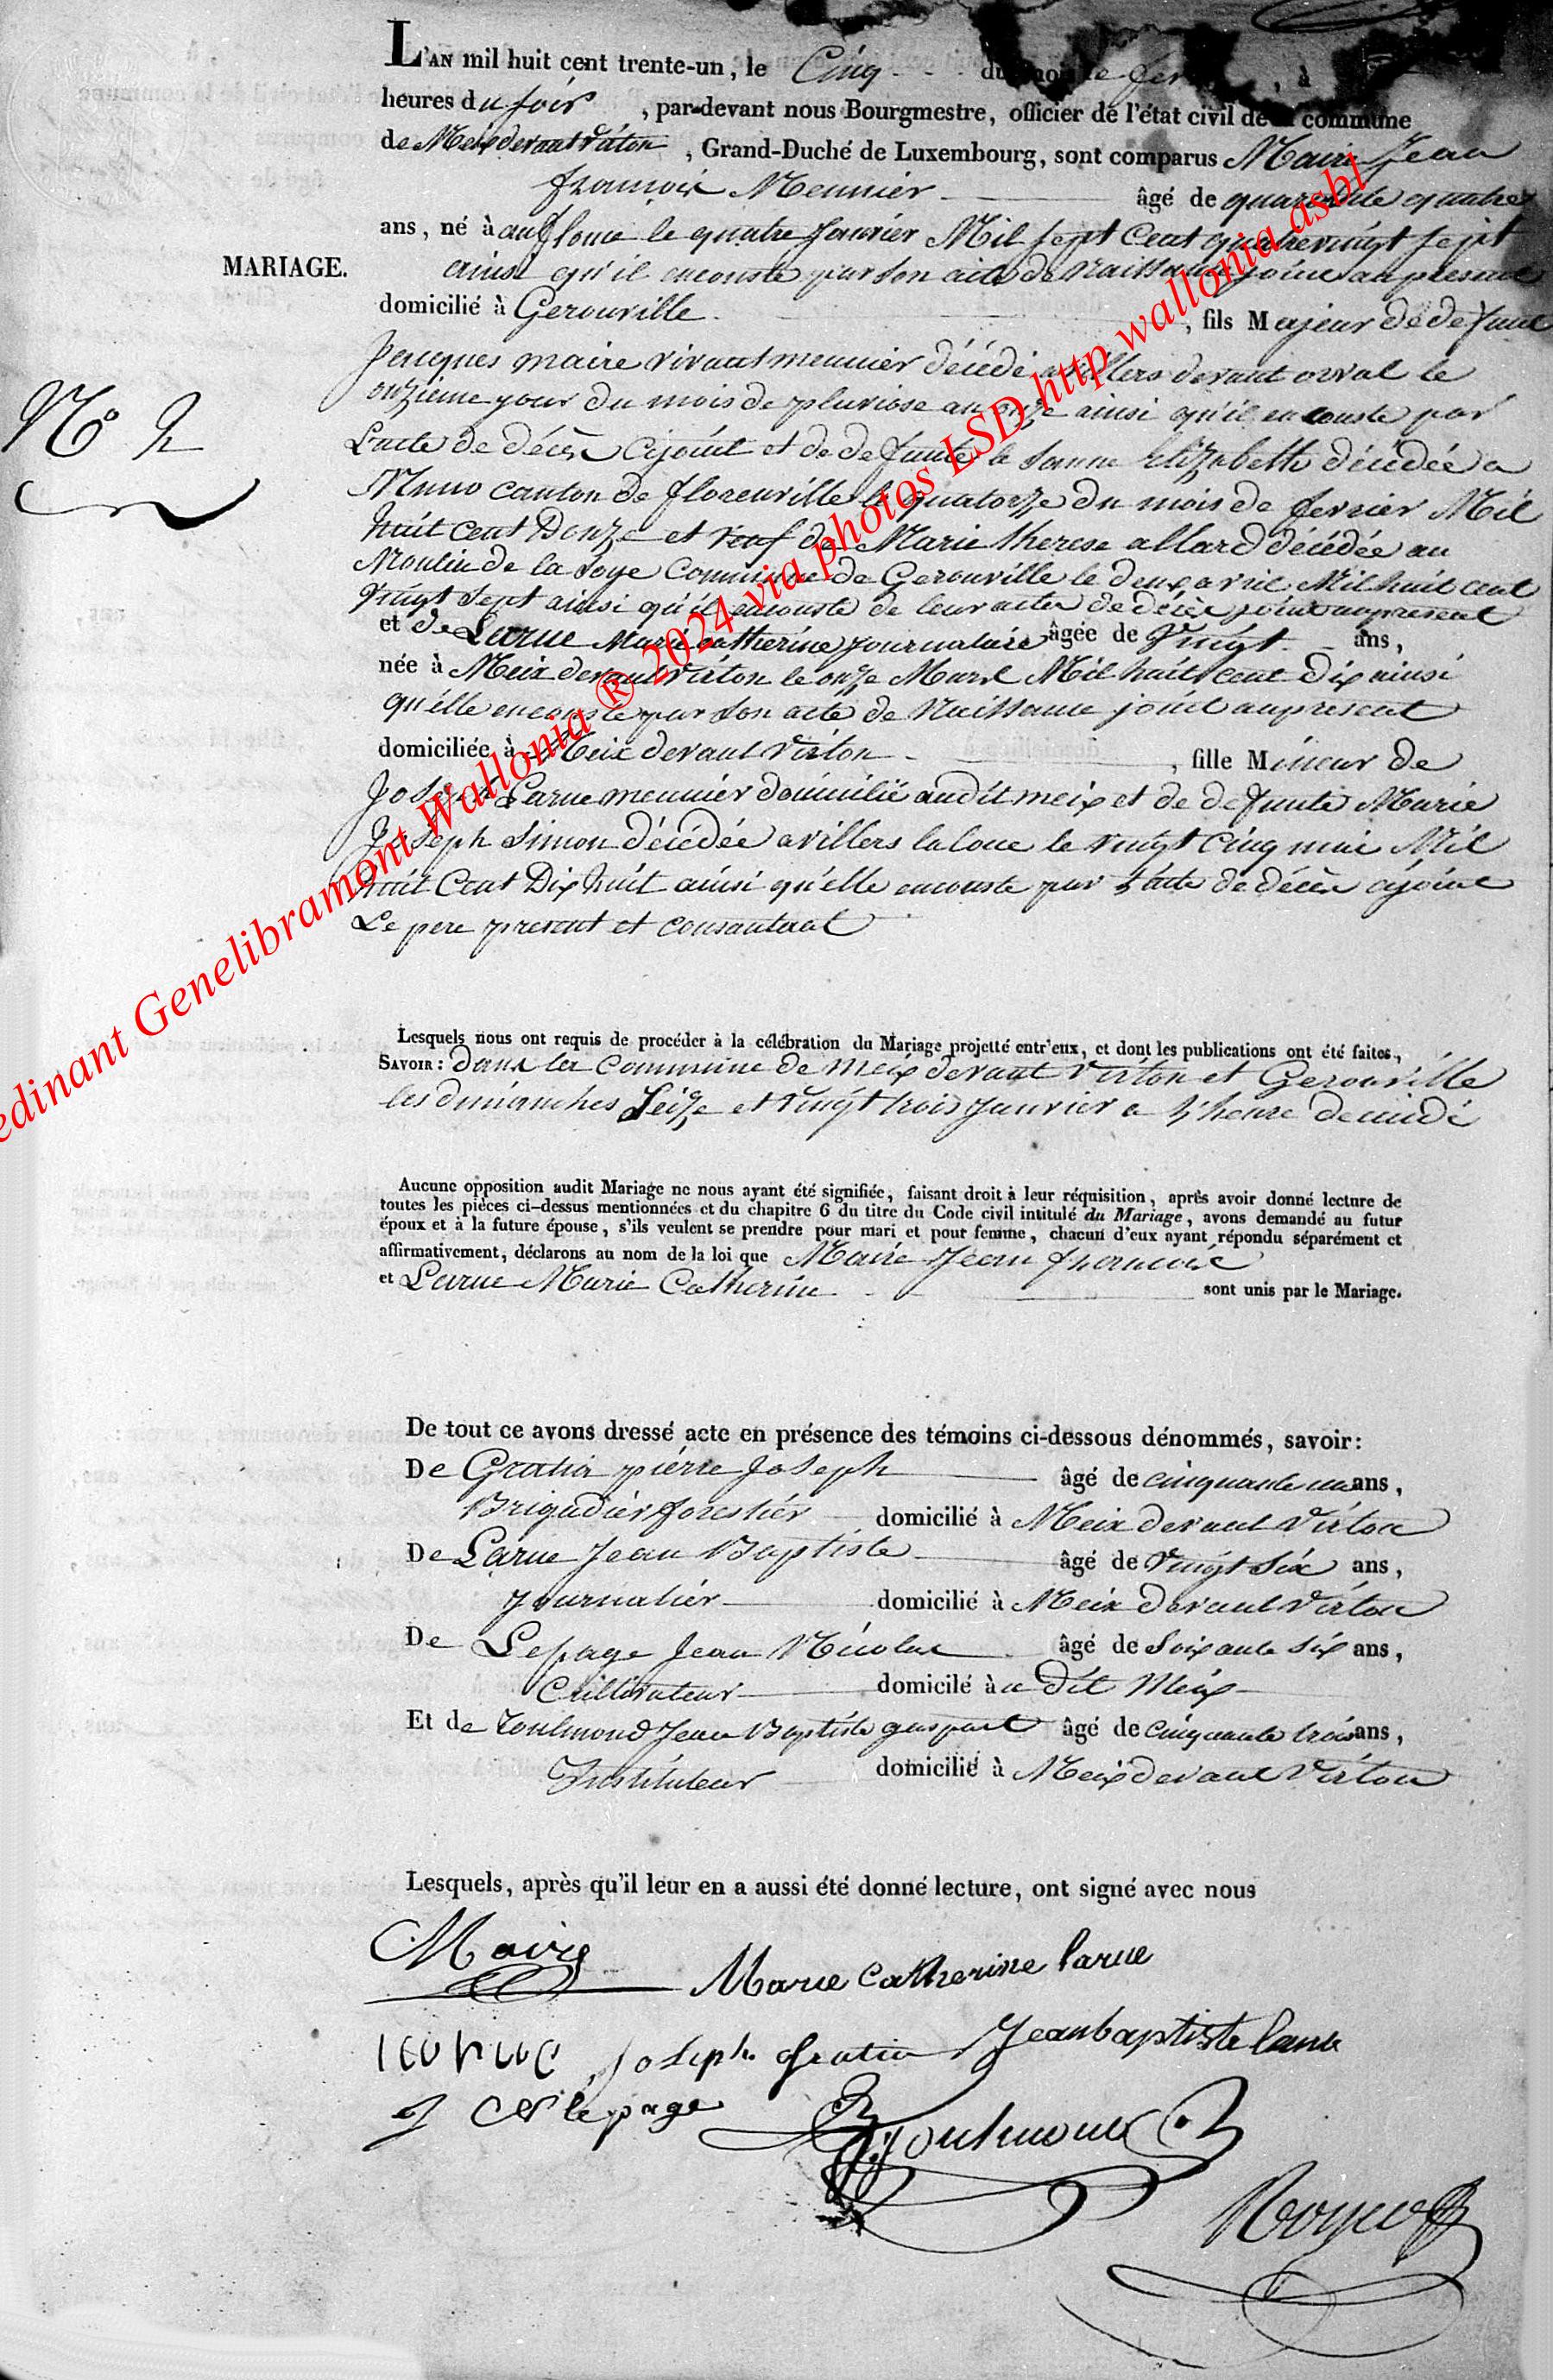 L'AN mil huit cent trente-un, le Cinq du mois de
heures du soir, par-devant nous Bourgmestre, officier de l'état civil de la commune
de Meix devant Virton, Grand-Duché de Luxembourg, sont comparus Maire Jean
françois Meunier âgé de quarente quatre
ans, né à le quatre Mil sept Cent quatrevingt sept
ainsi qu'il enconste par son acte de Naissance joint au present
MARIAGE.
domicilié à Gerouville, fils Majeur de defunt
Jacques maire vivant meunier décédé a villers devant orval le
onzieme jour du mois de pluviose an onze ainsi qu'il enconste par
N° 2
l'acte de décès cijoint et de defunte Elizabette décédée a
Muno canton de florenville le quatorze du mois de fevrier Mil
huit cent Douze et veuf de Marie therese allard décédée au
Moulin de la Soye Commune de Gerouville le deux avril Mil huit cent
Vingt Sept ainsi qu'il enconste de leur actes de décès joint au present
et de Larue Marie catherine journaliere âgée de Vingt ans,
née à Meix devant Virton le onze Mars Mil huit cent Dix ainsi
qu'elle enconste par son acte de Naissance joint au present
domiciliée à Meix devant Virton, fille Mineur de
Joseph Larue meunier domicilié audit meix et de defunte Marie
Joseph Simon décédée a villers laloue le vingt Cinq mai Mil
huit Cent Dix huit ainsi qu'elle enconste par l'acte de décès cijoint
Le pere present et consantant
Lesquels nous ont requis de procéder à la célébration du Mariage projetté entr'eux, et dont les publications ont été faites,
SAVOIR: dans les commune de Meix devant Virton et Gerouville
les dimanches Seize et Vingt trois janvier a l'heure de midi
Aucune opposition audit Mariage ne nous ayant été signifiée, faisant droit à leur réquisition, après avoir donné lecture de
toutes les pièces ci-dessus mentionnées et du chapitre 6 du titre du Code civil intitulé du Mariage, avons demandé au futur
époux et à la future épouse, s'ils veulent se prendre pour mari et pour femme, chacun d'eux ayant répondu séparément et
affirmativement, déclarons au nom de la loi que Maire Jean françois
et Larue Marie Catherine sont unis par le Mariage.
De tout ce avons dressé acte en présence des témoins ci-dessous dénommés, savoir:
De Gratia pierre Joseph âgé de cinquante un ans,
Brigadier forestier domicilié à Meix devant Virton
De Larue Jean Baptiste âgé de Vingt Six ans,
journalier domicilié à Meix devant Virton
De Lepage Jean Nicolas âgé de Soixante Six ans,
Cultivateur domicilé à u dit Meix
Et de Toulmond Jean Baptiste gaspart âgé de cinquante trois ans,
Instituteur domicilié à Meix devant Virton
Lesquels, après qu'il leur en a aussi été donné lecture, ont signé avec nous
Maire
Marie Catherine larue
Joseph Gratia Jeanbaptiste larue
J N lepage Toulmond
edinant Genelibramont Wallonia ® 2024 via photos LSD http wallonia asbl